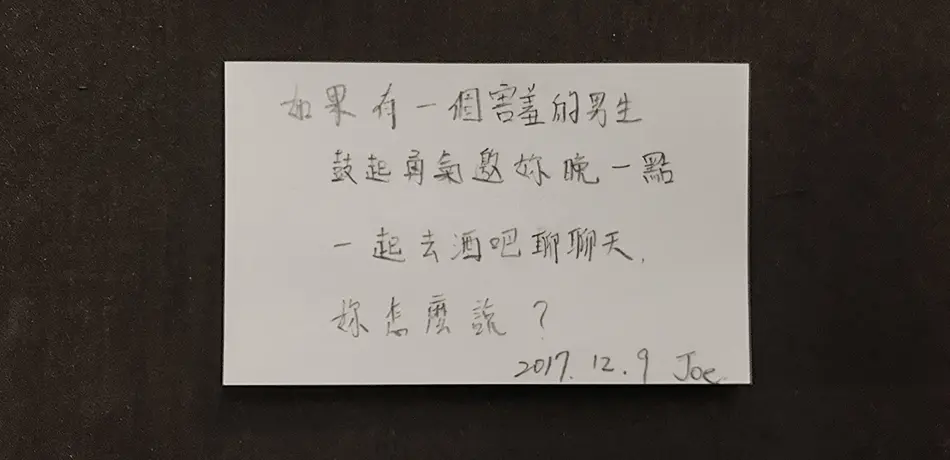 如果有一個害羞的男生
鼓起勇氣邀妳晚一點
一起去酒吧聊聊天,
妳怎麼說?
2017.12.9 Joe